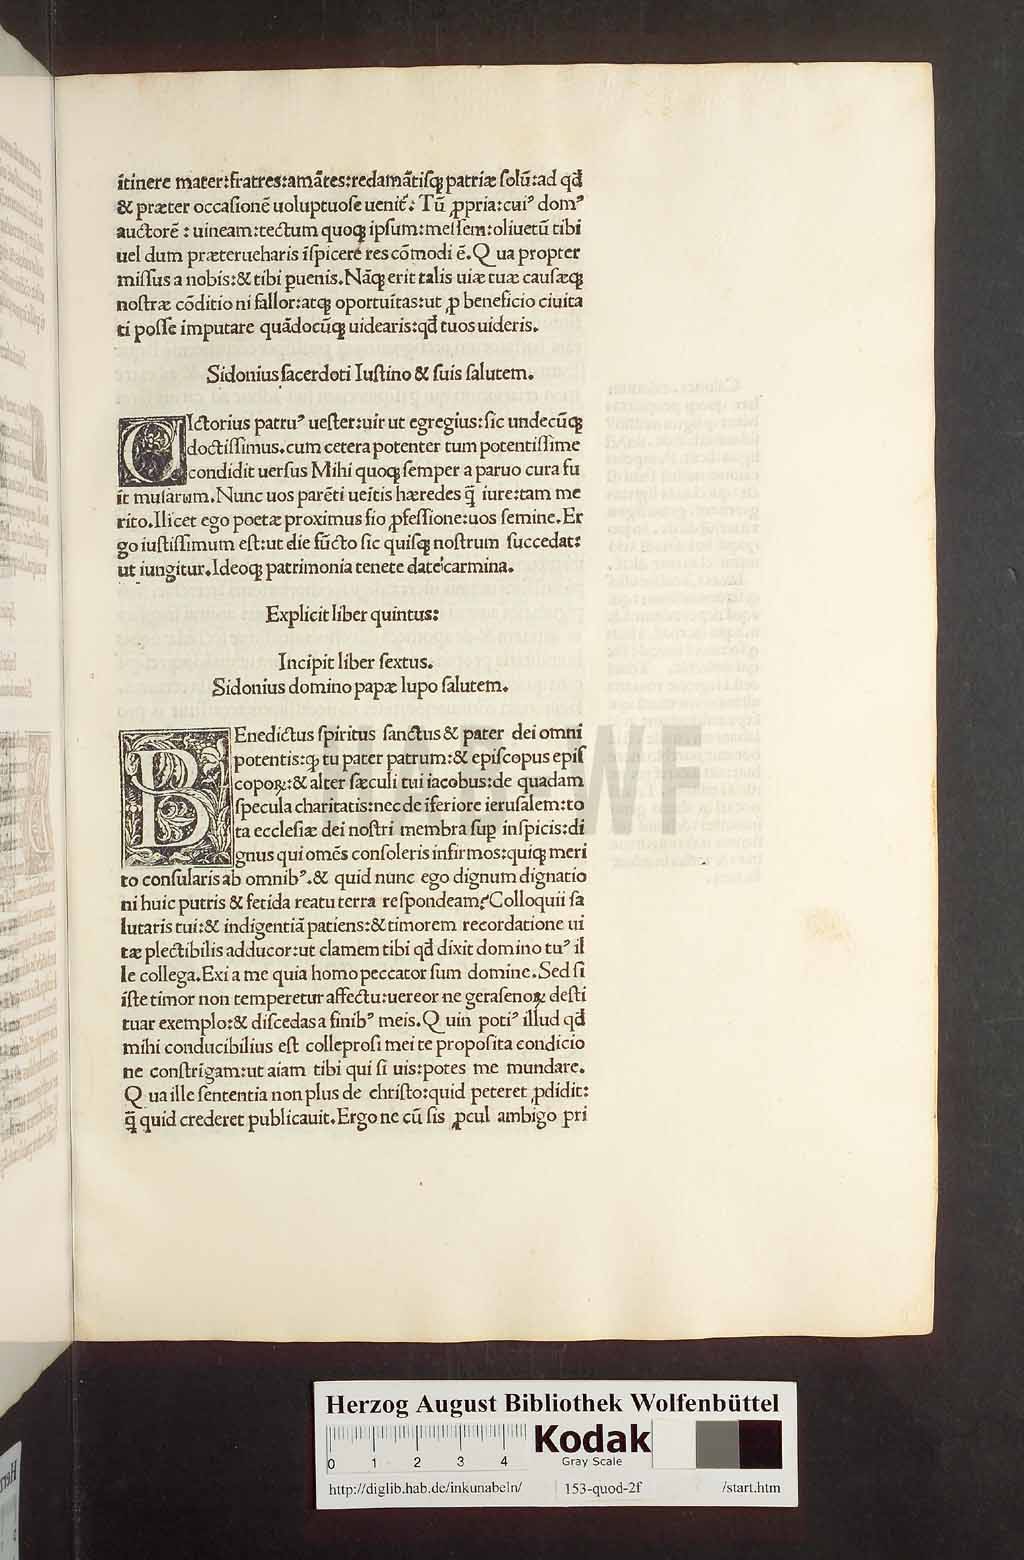 ĩtinere mater:fratres:amãtes:redamãtisꝗ patriæ solũ:ad qđ
& præter occasionẽ uoluptuose uenit᷒: Tũ ꝓpria:cuiꝰ domꝰ
auctorẽ : uineam:tectum quoꝗ ipsum:messem:oliuetũ tibi
uel dum præterueharis ĩspicere res cõmodi ẽ.Qua propter
missus a nobis:& tibi ꝑuenis.Nãꝗ erit talis uiæ tuæ causæꝗ
nostræ cõditio ni fallor:atꝗ oportuitas:ut ꝓ beneficio ciuita
ti posse imputare quãdocũꝗ uidearis:qđ tuos uideris.
Sidonius sacerdoti Iustino & suis salutem.
Ictorius patruꝰ uester:uir ut egregius:sic undecũꝗ
doctissimus.cum cetera potenter tum potentissime
condidit uersus Mihi quoꝗ semper a paruo cura fu
ĩt musarum.Nunc uos parẽti ueĩtis hæredes q̃ iure:tam me
rito.Ilicet ego poetæ proximus fio ꝓfessione:uos semine.Er
go iustissimum est:ut die fũcto sic quisꝗ nostrum succedat:
ut iungitur.Ideoꝗ patrimonia tenete date carmina.
Explicit liber quintus:
Incipit liber sextus.
Sidonius domino papæ lupo salutem.
BEnedictus spiritus sanctus & pater dei omni
potentis:ꝗ tu pater patrum:& episcopus epis
copoꝝ:& alter sæculi tui iacobus:de quadam
specula charitatis:nec de ĩferiore ierusalem:to
ta ecclesiæ dei nostri membra suꝑ inspicis:di
gnus qui omẽs consoleris infirmos:quiꝗ meri
to consularis ab omnibꝰ.& quid nunc ego dignum dignatio
ni huic putris & fetida reatu terra respondeam?Colloquii sa
lutaris tui:& indigentiã patiens:& timorem recordatione ui
tæ plectibilis adducor:ut clamem tibi qđ dixit domino tuꝰ il
le collega.Exi a me quia homo peccator sum domine.Sed si
iste timor non temperetur affectu:uereor ne gerasenoꝝ desti
tuar exemplo:& discedas a finibꝰ meis.Quin potiꝰ illud qđ
mihi conducibilius est colleprosi mei te proposita condicio
ne constrĩgam:ut aiam tibi qui si uis:potes me mundare.
Qua ille sententia non plus de christo:quid peteret ꝓdidit:
q̃ quid crederet publicauit.Ergo ne cũ sis ꝓcul ambigo pri
HAB-WF
Herzog August Bibliothek Wolfenbüttel
0 1 2 3 4 Kodak
Gray Scale
http://diglib.hab.de/inkunabeln/ 153-quod-2f /start.htm